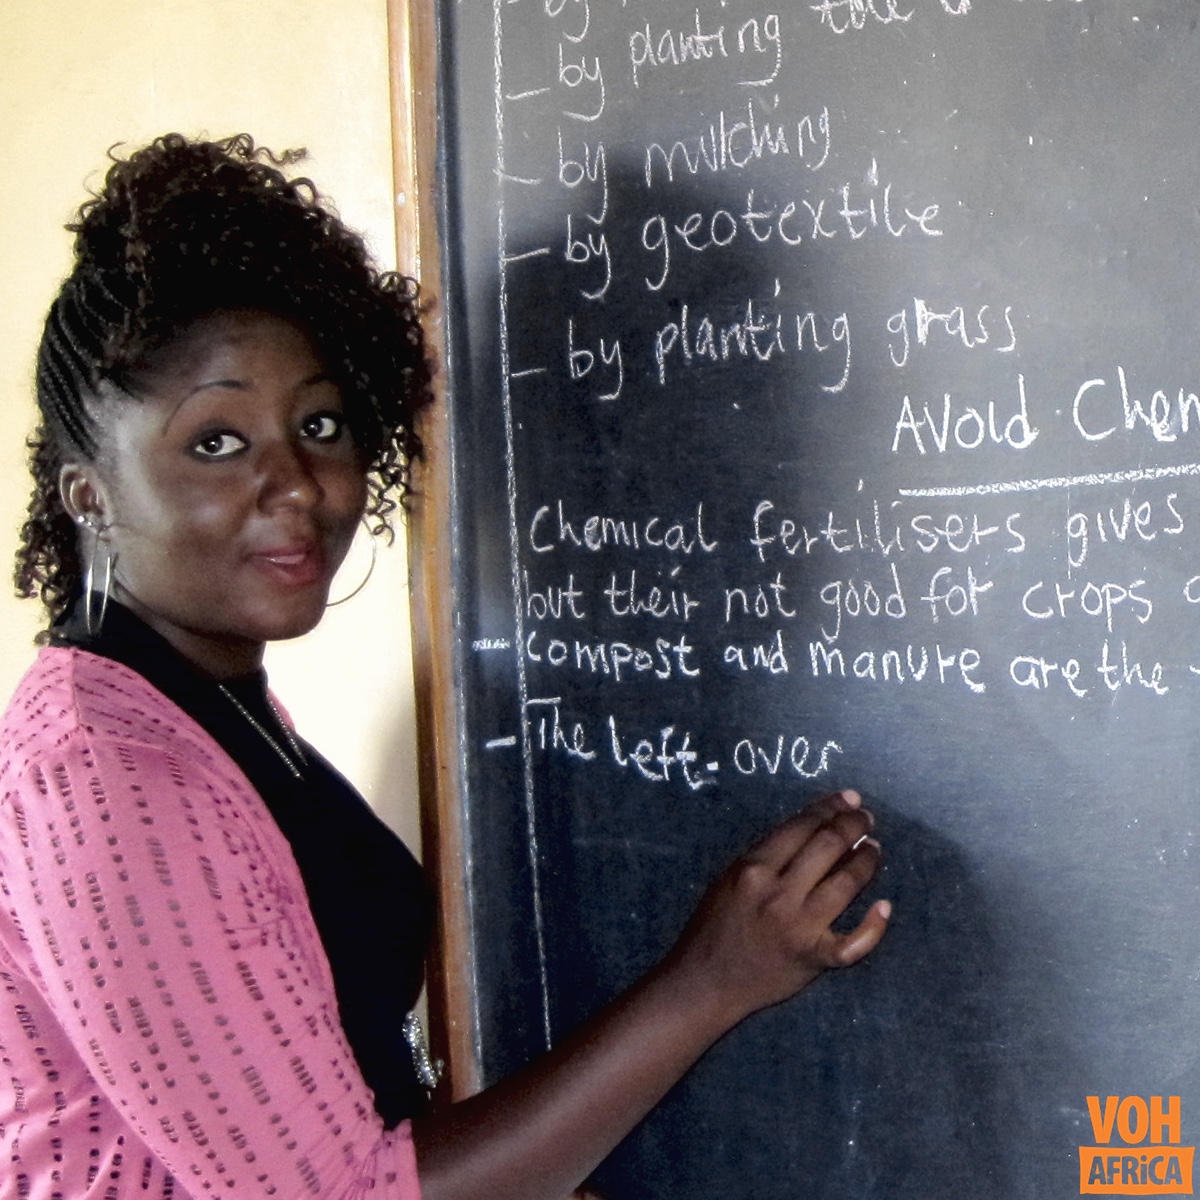 - by planting
- by mulching
- by geotextile
- by planting grass
Avoid Chem
Chemical fertilisers gives
but their not good for crops
- compost and manure are the
- The left-over
VOH
AFRiCA